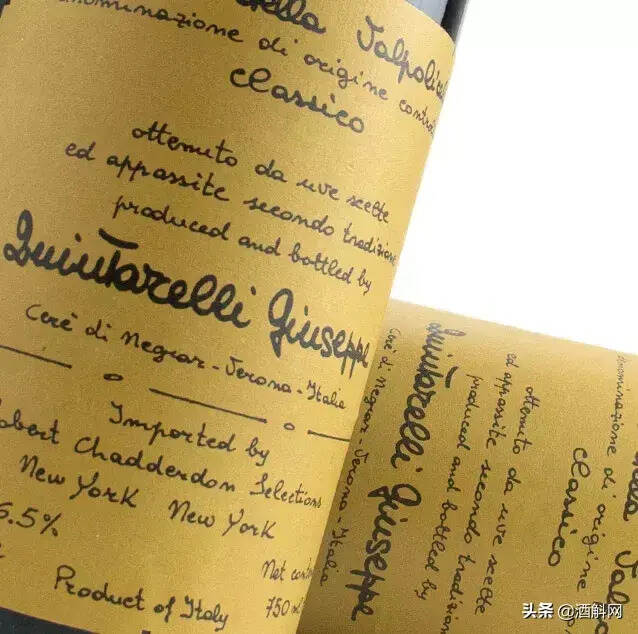 della Valpolicella
denominazione di origine controllata
classico
ottenuto da uve scelte
ed appassite secondo tradizione
produced and bottled by
Quintarelli Giuseppe
Cerè di Negrar - Verona - Italia
Imported by
Robert Chadderdon Selections
New York New York
6.5%
Net cont
750 ml
Product of Italy
denominazione di origine
classico
ottenuto da uve scelte
ed appassite secondo tradizion
produced and bottled by
Quintarelli Giuseppe
Cerè di Negrar - Verona - Italia
头条 @酒斛网